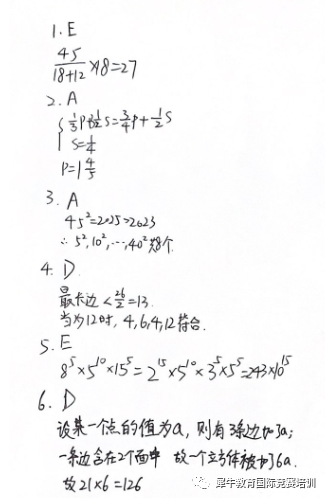 1. E
45/(18+12) ×18=27
2. A
{ 1/3P+1/2S=3/4P+1/2S
S=1/4
P=1 4/5
3. A
45²=2025>2023
∴ 5²,10²,…,40²共8个.
4. D.
最长边 < 26/2=13.
当为12时, 4,6,4,12符合.
5. E
8⁵×5¹⁰×15⁵=2¹⁵×5¹⁰×3⁵×5⁵=243×10¹⁵
6. D
设某一个点的值为a, 则有3条边加了3a;
一条边含在2个面中 故一个立方体被加了6a.
故21×6=126
犀牛教育国际竞赛培训